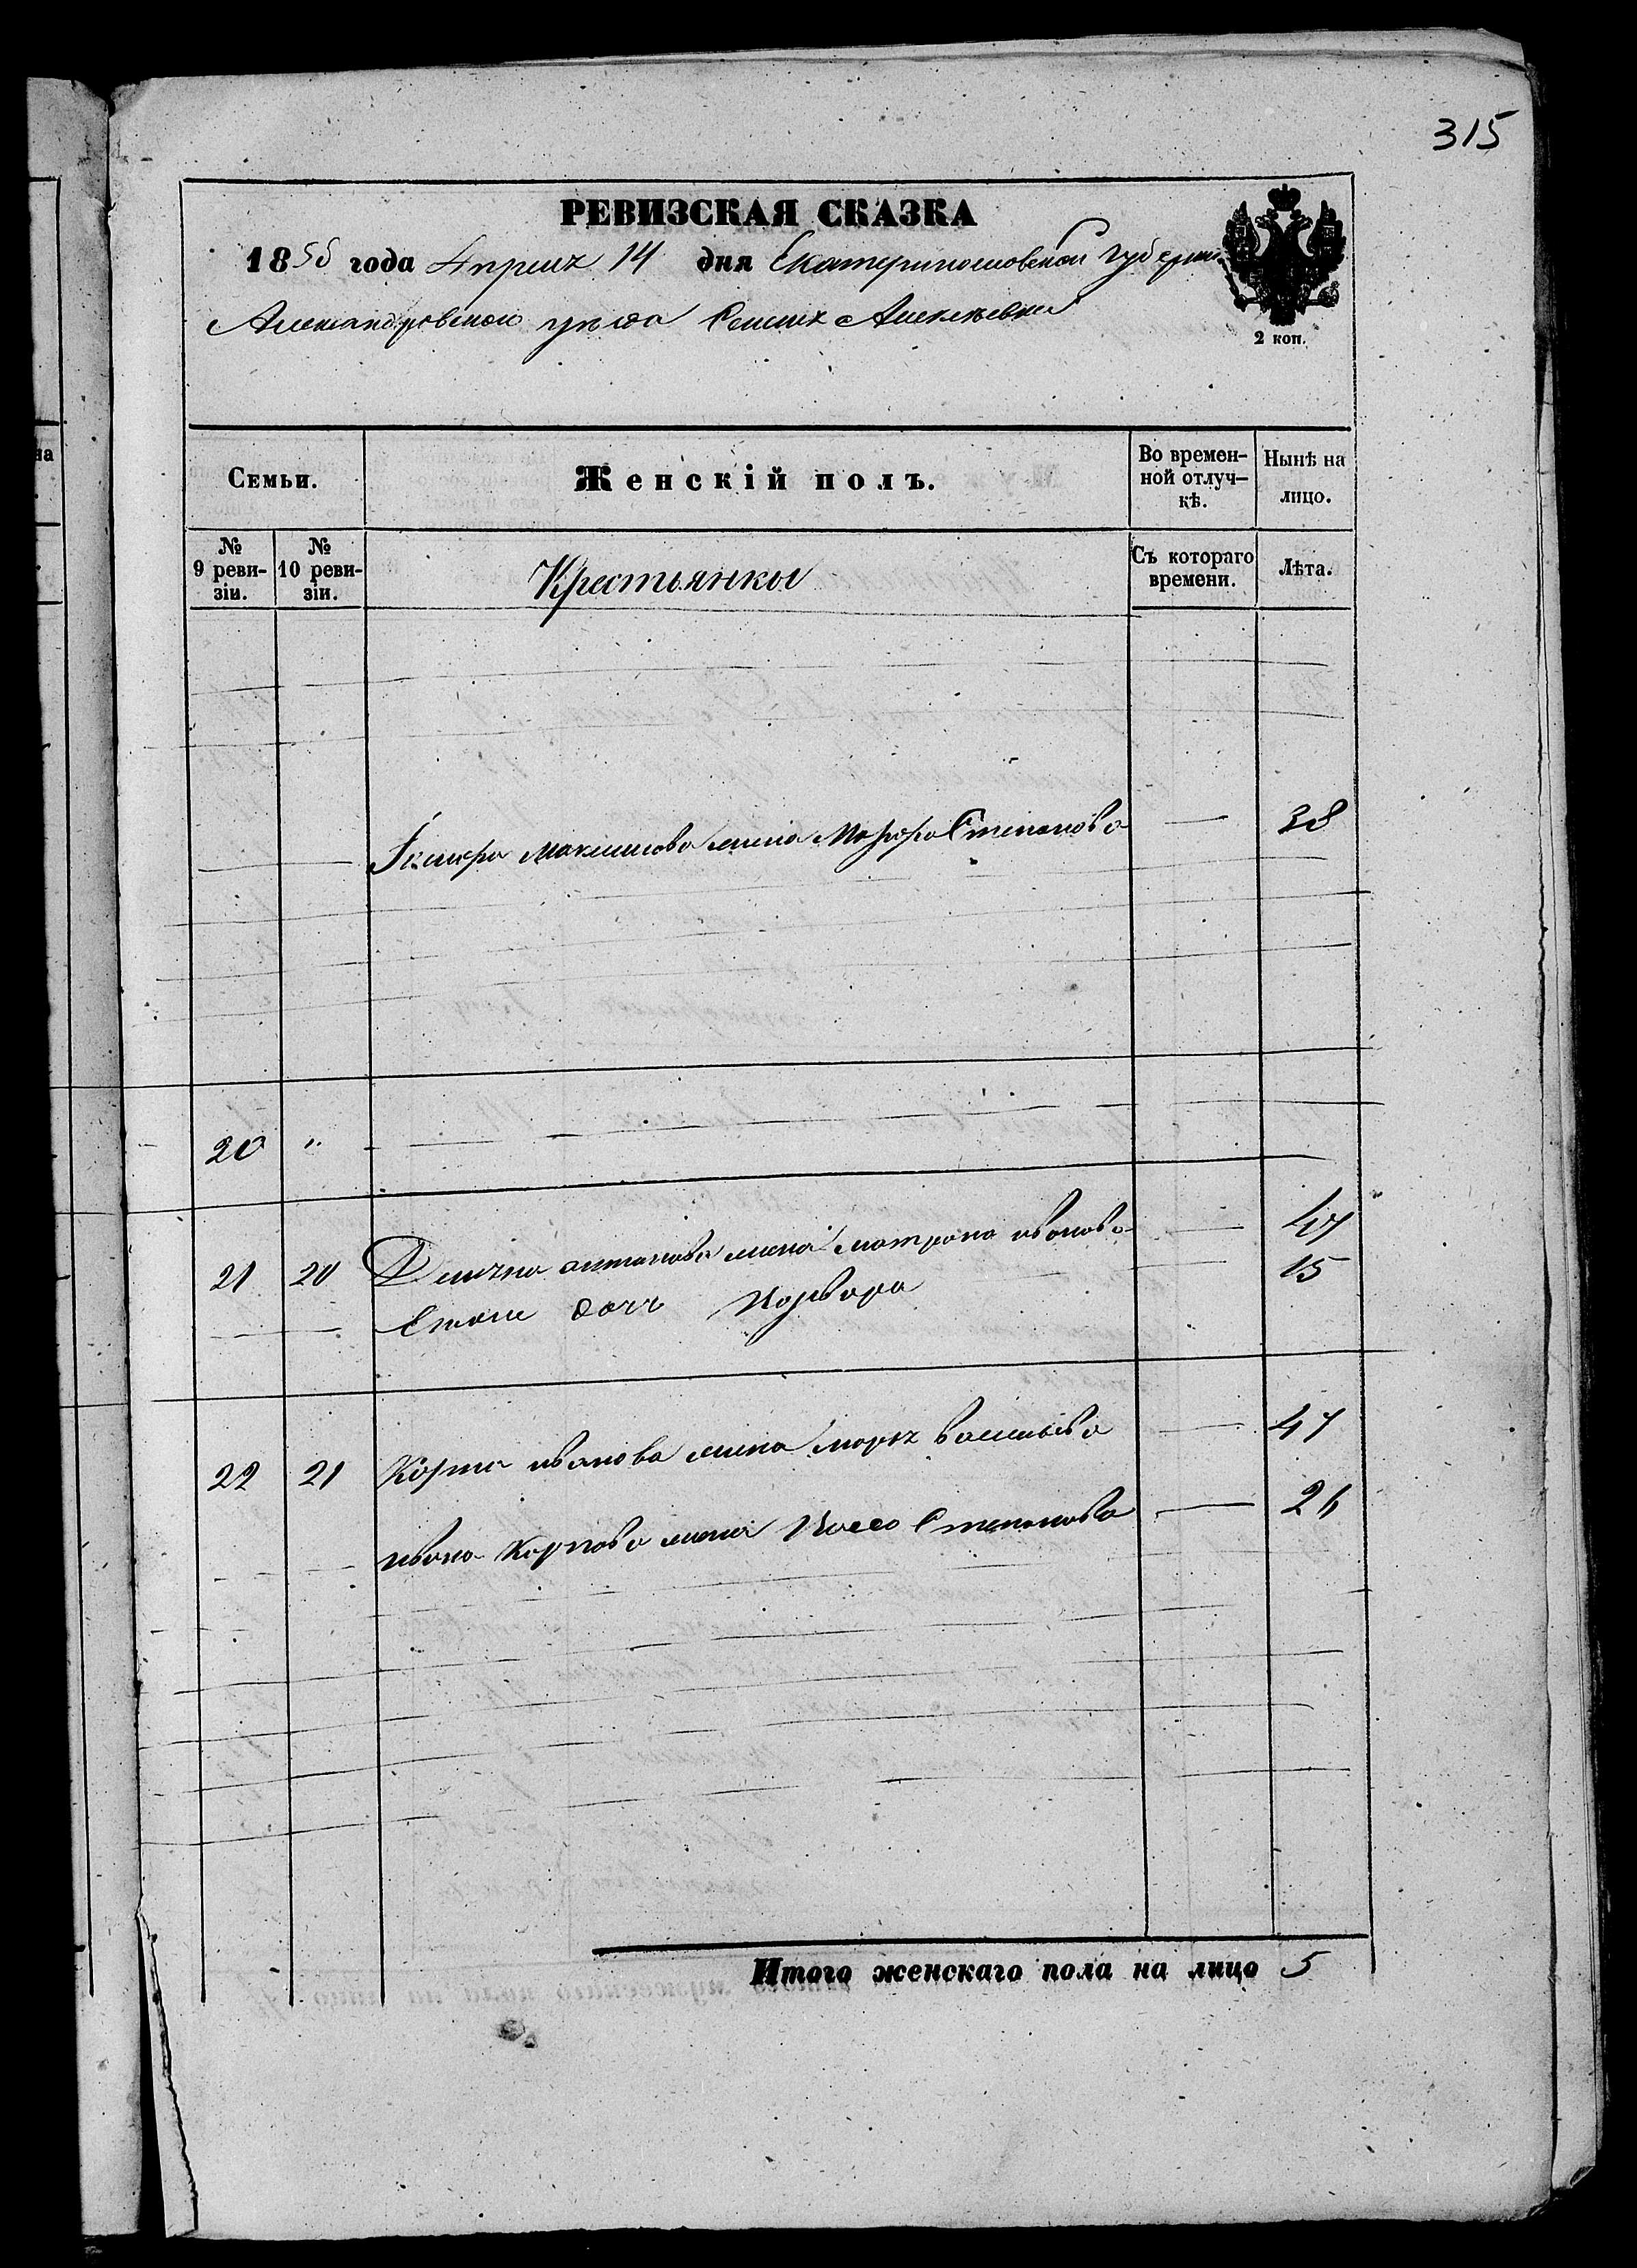 315
РЕВИЗСКАЯ СКАЗКА
1858 года Апреля 14 дня Екатеринославской Губернии
Александровскаго уезда Алексѣевки
2 коп.
Семьи.
Женскій полъ.
Во времен-
ной отлуч-
кѣ.
Нынѣ на
лицо.
№
9 реви-
зіи.
№
10 реви-
зіи.
Крестьянки
Съ котораго
времени.
Лѣта.
Максимова жена Марфа Степанова — 38
20 "
21 20 антонова жена матрона иванова — 47
Еможе дочь Варвара — 15
22 21 Карпа иванова жена марья васильева — 47
ивана Карпова жена Степанова — 26
Итого женскаго пола на лицо 5